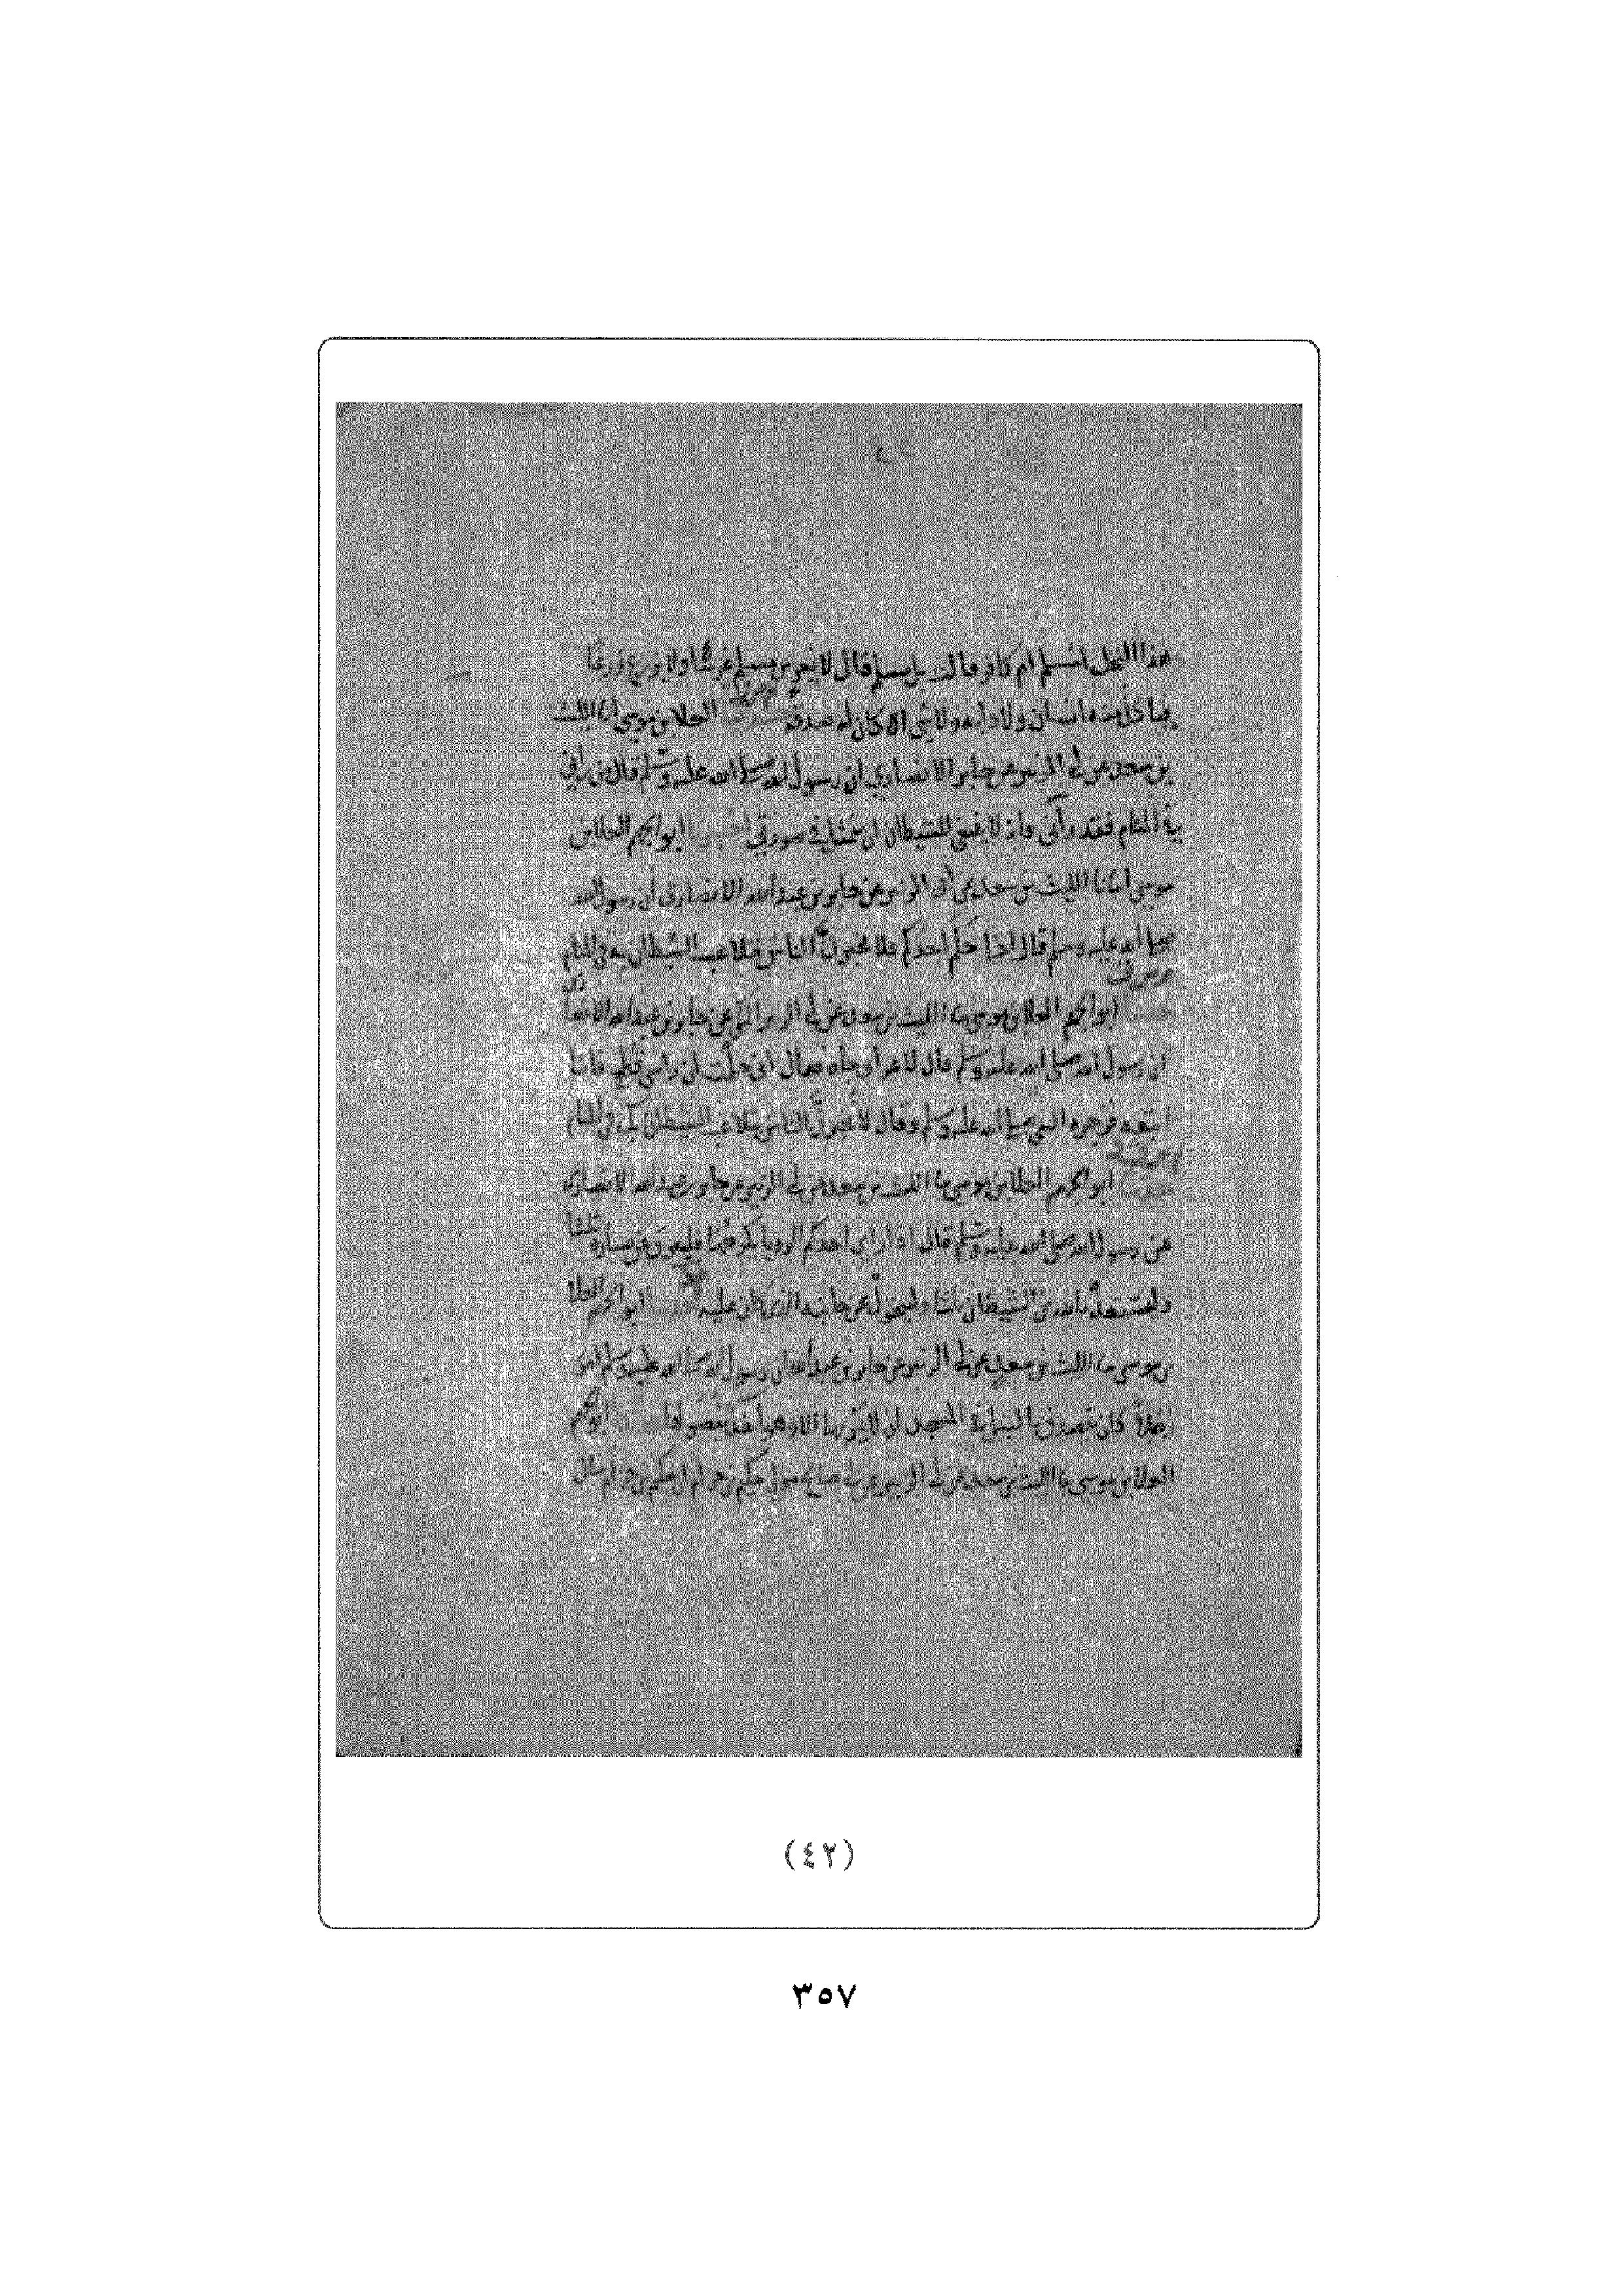 ٤٢
هذا النخل امسلم ام كافر فقالت بل مسلم قال لا يغرس مسلم غرسًا ولا يزرع زرعًا
فياكل منه انسان ولا دابه ولا شي الا كان له صدقه العلا بن موسى الليث
بن سعد عن ابي الزبير عن جابر الانصاري ان رسول الله صلى الله عليه وسلم قال من راني
في المنام فقد رآني وانه لا ينبغي للشيطان ان يتمثل في صورتي ابو الجهم العلا بن
موسى الليث بن سعد عن ابي الزبير عن جابر بن عبد الله الانصاري ان رسول الله
صلى الله عليه وسلم قال اذا حلم احدكم فلا يخبرن الناس بتلاعب الشيطان به في المنام
ابو الجهم العلا بن موسى نا الليث بن سعد عن ابي الزبير المكي عن جابر بن عبد الله الانصا
ان رسول الله صلى الله عليه وسلم قال لاعرابي جاه فقال اني حلمت ان راسي قطع فانا
اتبعه فزجره النبي صلى الله عليه وسلم وقال لا تخبرن الناس بتلاعب الشيطان بك في المنام
ابو الجهم العلا بن موسى نا الليث بن سعد عن ابي الزبير عن جابر بن عبد الله الانصاري
عن رسول الله صلى الله عليه وسلم قال اذا راى احدكم الرويا يكرهها فليبزق عن يساره ثلثا
وليستعذ بالله من الشيطان ثلثا وليتحول عن جانبه الذي كان عليه ابو الجهم العلا
بن موسى نا الليث بن سعد عن ابي الزبير عن جابر بن عبد الله ان رسول الله صلى الله عليه وسلم امر
رجلاً كان يتصدق بالنبل في المسجد ان لا يمر بها الا وهو اخذ بنصولها ابو الجهم
العلا بن موسى نا الليث بن سعد عن ابي الزبير عن ابي صالح مولى حكيم بن حزام ان حكيم بن حزام سال
(٤٢)
٣٥٧